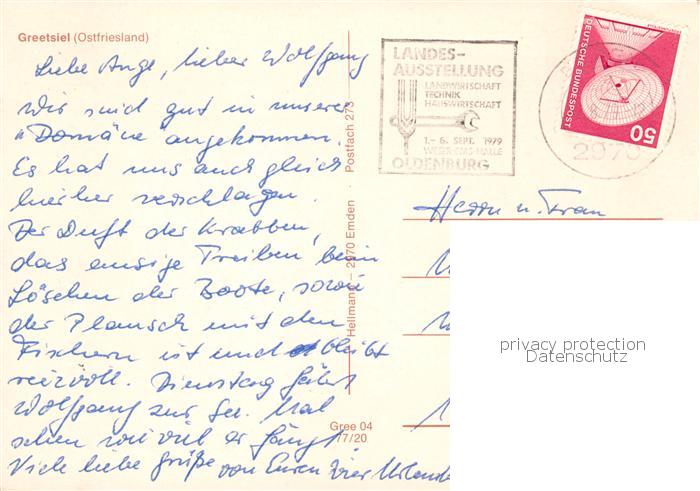 Greetsiel (Ostfriesland)
Liebe Ange, lieber Wolfgang
Wir sind gut in unserer
"Domäne" angekommen.
Es hat uns auch gleich
hierher verschlagen.
Der Duft der Krabben,
das emsige Treiben beim
Löschen der Boote, sowie
der Plausch mit den
Fischern ist und bleibt
reizvoll. Dienstag fährt
Wolfgang zur See. Mal
sehen wie viel er fängt.
Viele liebe Grüße von Euren vier
Hellmann – 2970 Emden Postfach 273
Gree 04
77/20
LANDES-
AUSSTELLUNG
LANDWIRTSCHAFT
TECHNIK
HAUSWIRTSCHAFT
1.–6. SEPT. 1979
WESER-EMS-HALLE
OLDENBURG
2970
DEUTSCHE BUNDESPOST
50
Herrn u. Frau
privacy protection
Datenschutz